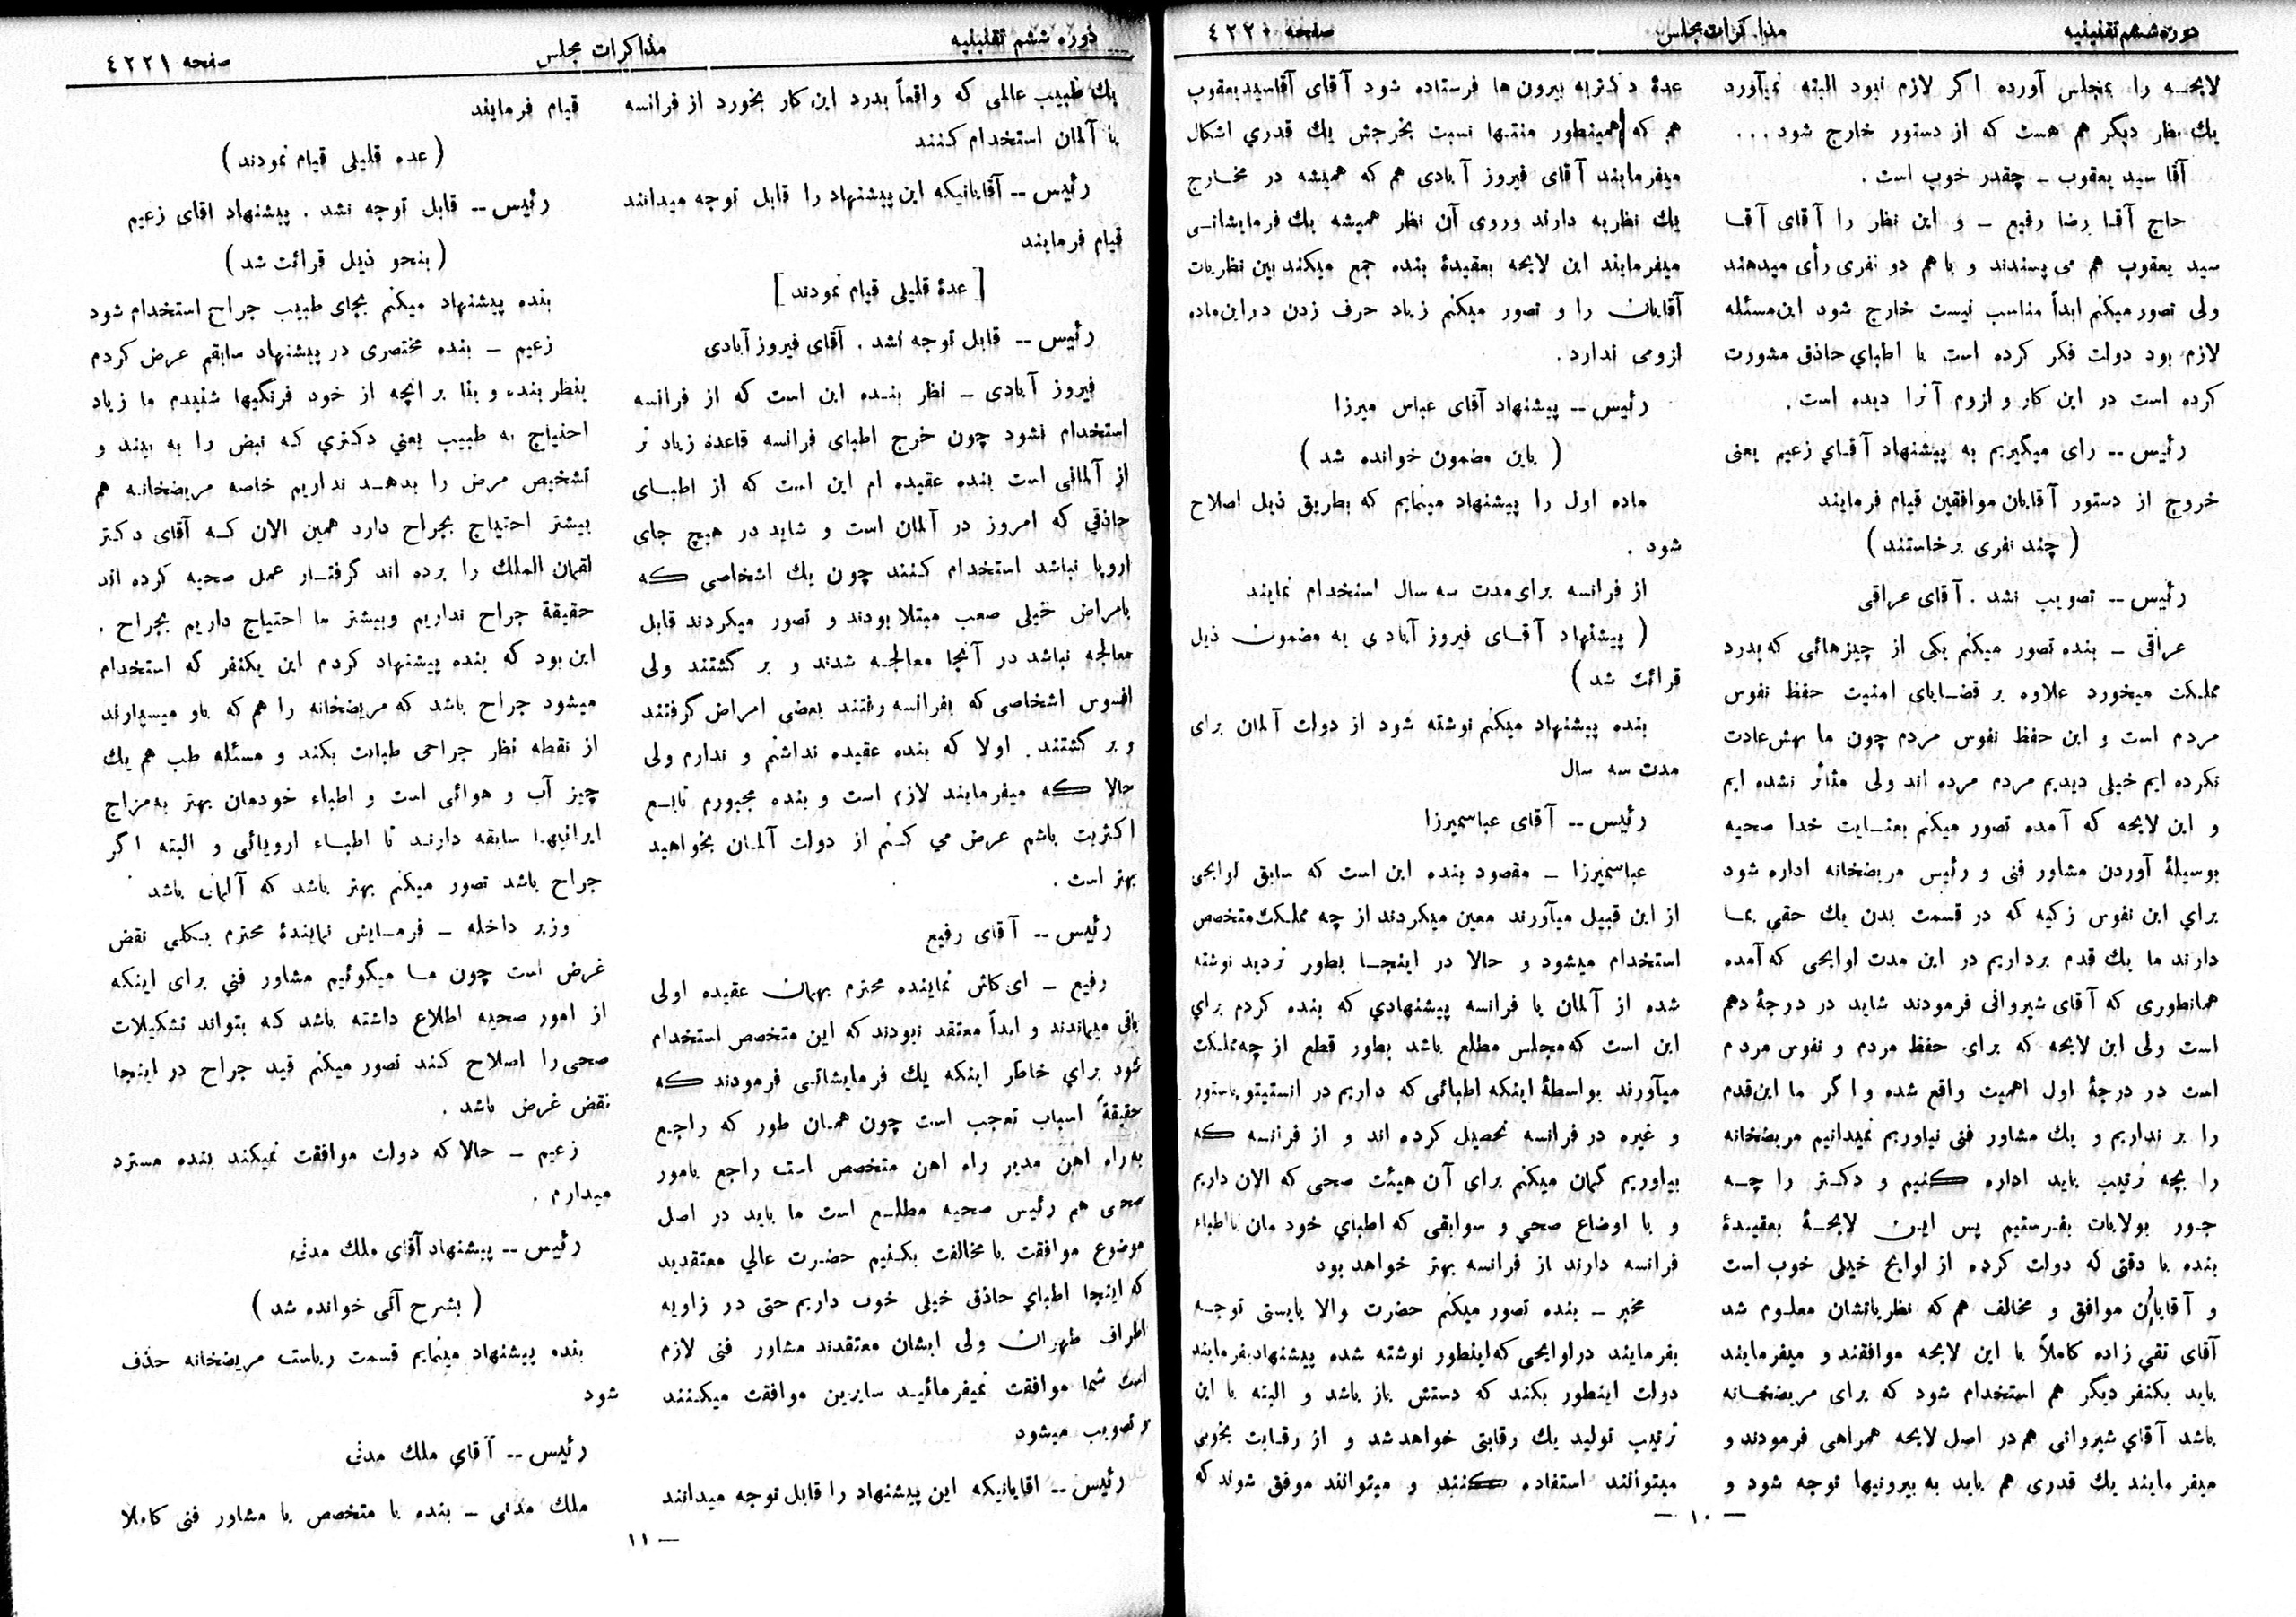 دوره ششم تقنینیه
مذاکرات مجلس
صفحه ٤٢٢٠
لایحـه را بمجلس آورده اگر لازم نبود البته نمیآورد
یك نظر دیگر هم هست که از دستور خارج شود ...
آقا سید یعقوب ـ چقدر خوب است .
حاج آقـا رضا رفیع ـ و این نظر را آقای آقـا
سید یعقوب هم می پسندند و با هم دو نفری رأی میدهند
ولی تصور میکنم ابداً مناسب نیست خارج شود این مسئله
لازم بود دولت فکر کرده است با اطبای حاذق مشورت
کرده است در این کار و لزوم آنرا دیده است .
رئیس ــ رای میگیریم به پیشنهاد آقـای زعیم یعنی
خروج از دستور آقایان موافقین قیام فرمایند
( چند نفری برخاستند )
رئیس ــ تصویب نشد . آقای عراقی
عراقی ـ بنده تصور میکنم یکی از چیزهائی که بدرد
مملکت میخورد علاوه بر قضـایای امنیت حفظ نفوس
مردم است و این حفظ نفوس مردم چون ما بهش عادت
نکرده ایم خیلی دیدیم مردم مرده اند ولی متأثر نشده ایم
و این لایحه که آمده تصور میکنم بعنـایت خدا صحیه
بوسیلهٔ آوردن مشاور فنی و رئیس مریضخانه اداره شود
برای این نفوس زکیه که در قسمت بدن یك حقی بمـا
دارند ما یك قدم برداریم در این مدت لوایحی که آمده
همانطوری که آقای شیروانی فرمودند شاید در درجهٔ دهم
است ولی این لایحه که برای حفظ مردم و نفوس مردم
است در درجهٔ اول اهمیت واقع شده و اگر ما این قدم
را بر نداریم و یك مشاور فنی نیاوریم نمیدانیم مریضخانه
را بچه ترتیب باید اداره کنیم و دکـتر را چـه
جـور بولایات بفـرستیم پس ایـن لایحـهٔ بعقیـدهٔ
بنده با دقتی که دولت کرده از لوایح خیلی خوب است
و آقایان موافق و مخالف هم که نظریاتشان معلـوم شد
آقای تقی زاده کاملاً با این لایحه موافقند و میفرمایند
باید یکنفر دیگر هم استخدام شود که برای مریضخـانه
باشد آقای شیروانی هم در اصل لایحه همراهی فرمودند و
میفرمایند یك قدری هم باید به بیرونیها توجه شود و
عدهٔ دکتر به بیرون ها فرستاده شود آقای آقاسیدیعقوب
هم که همینطور منتـها نسبت بخرجش یك قدری اشکال
میفرمایند آقای فیروز آبادی هم که همیشه در مخـارج
یك نظریه دارند وروی آن نظر همیشه یك فرمایشاتـی
میفرمایند این لایحه بعقیدهٔ بنده جمع میکند بین نظریات
آقایان را و تصور میکنم زیاد حرف زدن در این ماده
لزومی ندارد .
رئیس ــ پیشنهاد آقای عباس میرزا
( باین مضمون خوانده شد )
ماده اول را پیشنهاد مینمایم که بطریق ذیل اصلاح
شود .
از فرانسه برای مدت سه سال استخدام نمایند
( پیشنهاد آقـای فیروز آبادی به مضمون ذیل
قرائت شد )
بنده پیشنهاد میکنم نوشته شود از دولت آلمان برای
مدت سه سال
رئیس ــ آقای عباسمیرزا
عباسمیرزا ـ مقصود بنده این است که سابق لوایحی
از این قبیل میآورند معین میکردند از چه مملکت متخصص
استخدام میشود و حالا در اینجـا بطور تردید نوشته
شده از آلمان یا فرانسه پیشنهادی که بنده کردم برای
این است که مجلس مطلع باشد بطور قطع از چه مملکت
میآورند بواسطهٔ اینکه اطبائی که داریم در انستیتو پاستور
و غیره در فرانسه تحصیل کرده اند و از فرانسه که
بیاوریم گمان میکنم برای آن هیئت صحی که الان داریم
و با اوضاع صحی و سوابقی که اطبای خودمان با اطباء
فرانسه دارند از فرانسه بهتر خواهد بود
مخبر ـ بنده تصور میکنم حضرت والا بایستی توجـه
بفرمایند در لوایحی که اینطور نوشته شده پیشنهاد بفرمایند
دولت اینطور بکند که دستش باز باشد و البته با این
ترتیب تولید یك رقابتی خواهد شد و از رقـابت بخوبی
میتوانند استفاده کنند و میتوانند موفق شوند که
— ١٠ —
دوره ششم تقنینیه
مذاکرات مجلس
صفحه ٤٢٢١
یك طبیب عالمی که واقعاً بدرد این کار بخورد از فرانسه
یا آلمان استخدام کنند
رئیس ــ آقایانیکه این پیشنهاد را قابل توجه میدانند
قیام فرمایند
[ عدهٔ قلیلی قیام نمودند ]
رئیس ــ قابل توجه نشد . آقای فیروز آبادی
فیروز آبادی ـ نظر بنـده این است که از فرانسه
استخدام نشود چون خرج اطبای فرانسه قاعدة زیاد تر
از آلمانی است بنده عقیده ام این است که از اطبـای
حاذقی که امروز در آلمان است و شاید در هیچ جای
اروپا نباشد استخدام کـنند چون یك اشخاصی که
بامراض خیلی صعب مبتلا بودند و تصور میکردند قابل
معالجه نباشد در آنجا معالجـه شدند و بر گشتند ولی
افسوس اشخاصی که بفرانسه رفتند بعضی امراض گرفتند
و بر گشتند . اولا که بنده عقیده نداشتم و ندارم ولی
حالا که میفرمایند لازم است و بنده مجبورم تابـع
اکثریت باشم عرض می کـنم از دولت آلمـان بخواهید
بهتر است .
رئیس ــ آقای رفیع
رفیع ـ ای کاش نماینده محترم بهمان عقیده اولی
باقی میماندند و ابداً معتقد نبودند که این متخصص استخدام
شود برای خاطر اینکه یك فرمایشاتـی فرمودند که
حقیقةً اسباب تعجب است چون همـان طور که راجـع
به راه اهن مدیر راه اهن متخصص است راجع بامور
صحی هم رئیس صحیه مطلـع است ما باید در اصل
موضوع موافقت یا مخالفت بکـنیم حضـرت عالی معتقدید
که اینجا اطبای حاذق خیلی خوب داریم حتی در زاویه
اطراف طهران ولی ایشان معتقدند مشاور فنی لازم
است شما موافقت نمیفرمائیـد سایرین موافقت میکـنند
و تصویب میشود
رئیس ــ اقایانیکه این پیشنهاد را قابل توجه میدانند
قیام فرمایند
( عده قلیلی قیام نمودند )
رئیس ــ قابل توجه نشد . پیشنهاد اقای زعیم
( بنحو ذیل قرائت شد )
بنده پیشنهاد میکنم بجای طبیب جراح استخدام شود
زعیم ـ بنده مختصری در پیشنهاد سابقم عرض کردم
بنظر بنده و بنا بر انچه از خود فرنگیها شنیدم ما زیاد
احتیاج به طبیب یعنی دکتری که نبض را به بیند و
تشخیص مرض را بدهـد نداریم خاصه مریضخانـه هم
بیشتر احتیاج بجراح دارد همین الان کـه آقای دکتر
لقمان الملك را برده اند گرفتـار عمل صحیه کرده اند
حقیقة جراح نداریم وبیشتر ما احتیاج داریم بجراح .
این بود که بنده پیشنهاد کردم این یکنفر که استخدام
میشود جراح باشد که مریضخانه را هم که باو میسپارند
از نقطه نظر جراحی طبابت بکند و مسئله طب هم یك
چیز آب و هوائی است و اطباء خودمان بهتر به مزاج
ایرانیهـا سابقه دارنـد تا اطبـاء اروپائی و البته اگر
جراح باشد تصور میکنم بهتر باشد که آلمان باشد
وزیر داخله ـ فرمـایش نمایندهٔ محترم بـکلی نقض
غرض است چون مـا میگوئیم مشاور فنی برای اینکه
از امور صحیه اطلاع داشته باشد که بتواند تشکیلات
صحی را اصلاح کند تصور میکنم قید جراح در اینجا
نقض غرض باشد .
زعیم ـ حالا که دولت موافقت نمیکند بنده مسترد
میدارم .
رئیس ــ پیشنهاد آقای ملك مدنی
( بشرح آتی خوانده شد )
بنده پیشنهاد مینمایم قسمت ریاست مریضخانه حذف
شود
رئیس ــ آقای ملك مدنی
ملك مدنی ـ بنده با متخصص یا مشاور فنی کاملا
— ١١